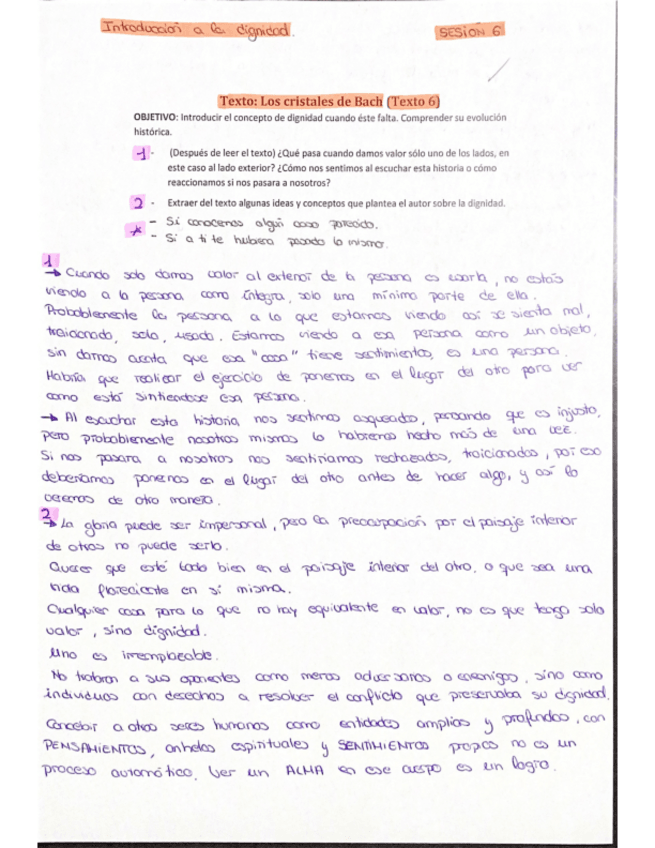 Introducción a la dignidad.
SESIÓN 6
Texto: Los cristales de Bach (Texto 6)
OBJETIVO: Introducir el concepto de dignidad cuando éste falta. Comprender su evolución
histórica.
1- (Después de leer el texto) ¿Qué pasa cuando damos valor sólo uno de los lados, en
este caso al lado exterior? ¿Cómo nos sentimos al escuchar esta historia o cómo
reaccionamos si nos pasara a nosotros?
2- Extraer del texto algunas ideas y conceptos que plantea el autor sobre la dignidad.
* - Si conocemos algún caso parecido.
- Si a ti te hubiera pasado lo mismo.
1
→ Cuando solo damos valor al exterior de la persona es , no estás
viendo a la persona como íntegra, solo una mínima parte de ella.
Probablemente la persona a lo que estamos viendo así se sienta mal,
traicionada, sola, usada. Estamos viendo a esa persona como un objeto,
sin darnos cuenta que esa "cosa" tiene sentimientos, es una persona.
Habría que realizar el ejercicio de ponernos en el lugar del otro para ver
como está sintiendose esa persona.
→ Al escuchar esta historia nos sentimos asqueados, pensando que es injusto,
pero probablemente nosotros mismos lo habremos hecho más de una vez.
Si nos pasara a nosotros nos sentiríamos rechazados, traicionados, por eso
deberíamos ponernos en el lugar del otro antes de hacer algo, y así lo
veremos de otra manera.
2
→ La gloria puede ser impersonal, pero la preocupación por el paisaje interior
de otros no puede serlo.
Querer que esté todo bien en el paisaje interior del otro, o que sea una
vida floreciente en sí misma.
Cualquier cosa para lo que no hay equivalente en valor, no es que tenga solo
valor, sino dignidad.
Uno es irremplazable.
No trataron a sus oponentes como meros adversarios o enemigos, sino como
individuos con derechos a resolver el conflicto que preservaba su dignidad.
Concebir a otros seres humanos como entidades amplias y profundas, con
PENSAMIENTOS, anhelos espirituales y SENTIMIENTOS propios no es un
proceso automático. Ver un ALMA en ese cuerpo es un logro.